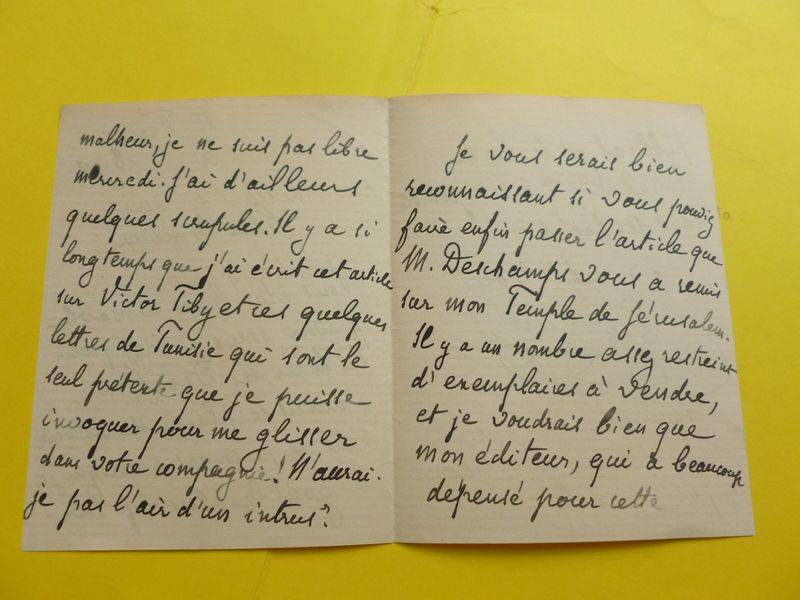 malheur, je ne suis pas libre
mercredi. J'ai d'ailleurs
quelques scrupules. Il y a si
longtemps que j'ai écrit cet article
sur Victor Tiby et ces quelques
lettres de Tunisie qui sont le
seul prétexte que je puisse
invoquer pour me glisser
dans votre compagnie! N'aurai-
je pas l'air d'un intrus?
Je vous serais bien
reconnaissant si vous pouviez
faire enfin passer l'article que
M. Deschamps vous a remis
sur mon Temple de Jérusalem.
Il y a un nombre assez restreint
d'exemplaires à vendre,
et je voudrais bien que
mon éditeur, qui a beaucoup
dépensé pour cette